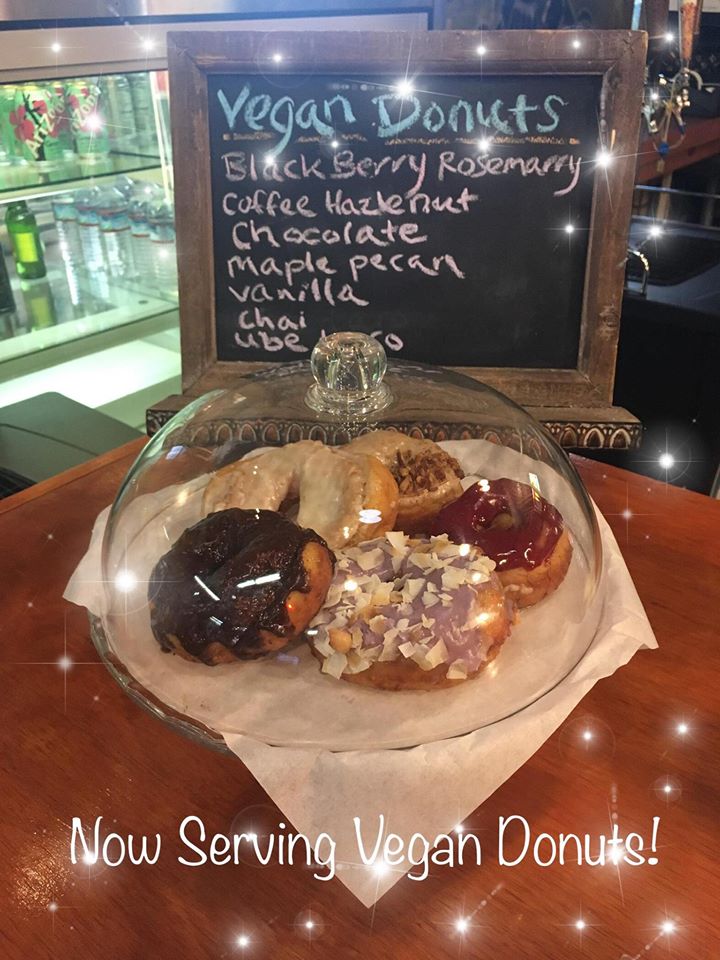 Vegan Donuts
Black Berry Rosemarry
Coffee Hazlenut
Chocolate
maple pecan
vanilla
chai
ube
AriZona
Now Serving Vegan Donuts!